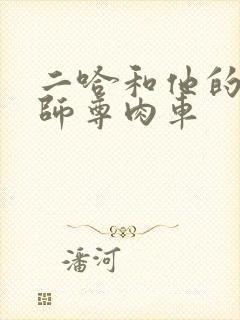 二哈和他的
師尊肉車
潘河